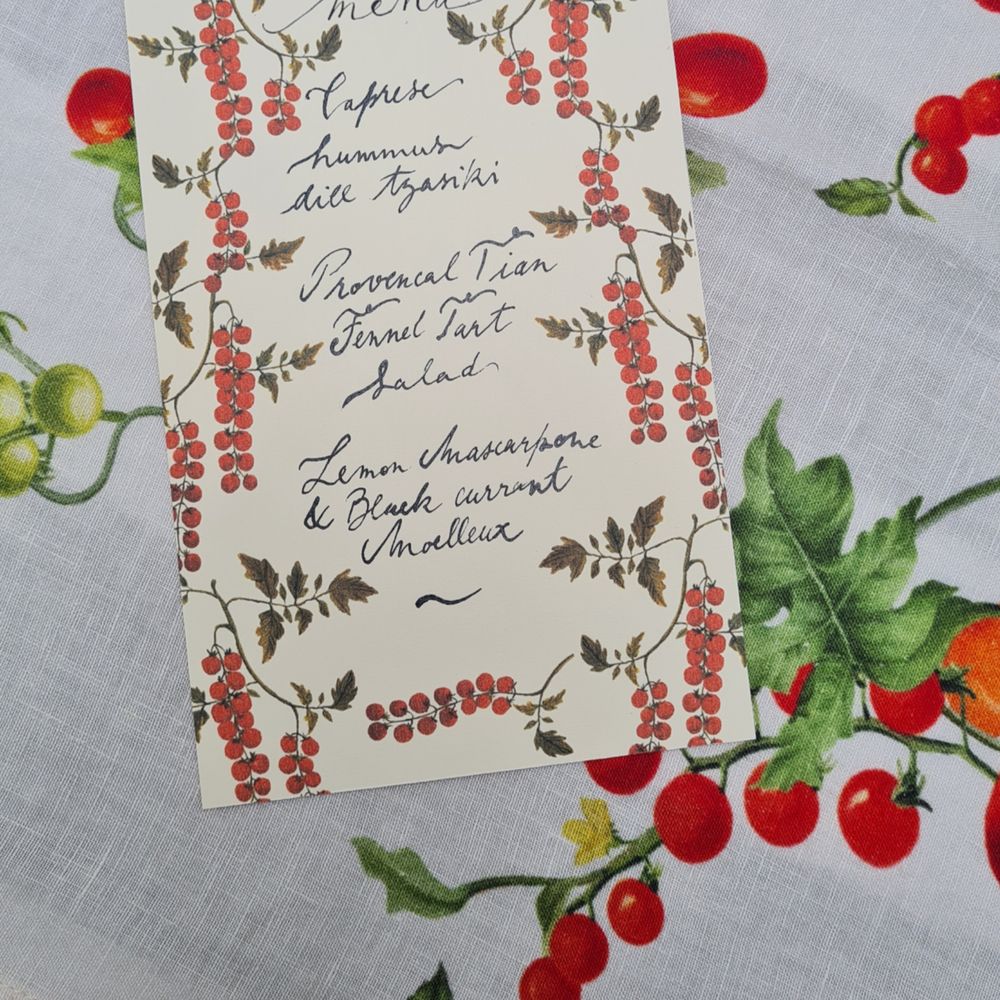 menu
Caprese
hummus
dill tzasiki
Provencal Tian
Fennel Tart
Salad
Lemon Mascarpone
& Black currant
Moelleux
~